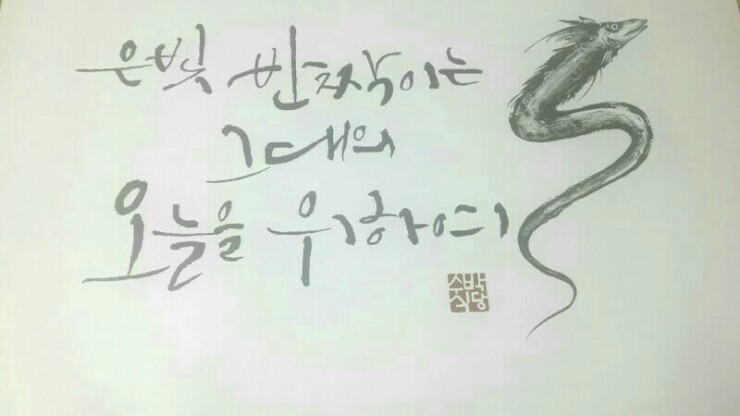 은빛 반짝이는
그대의
오늘을 위하여
수박
식당